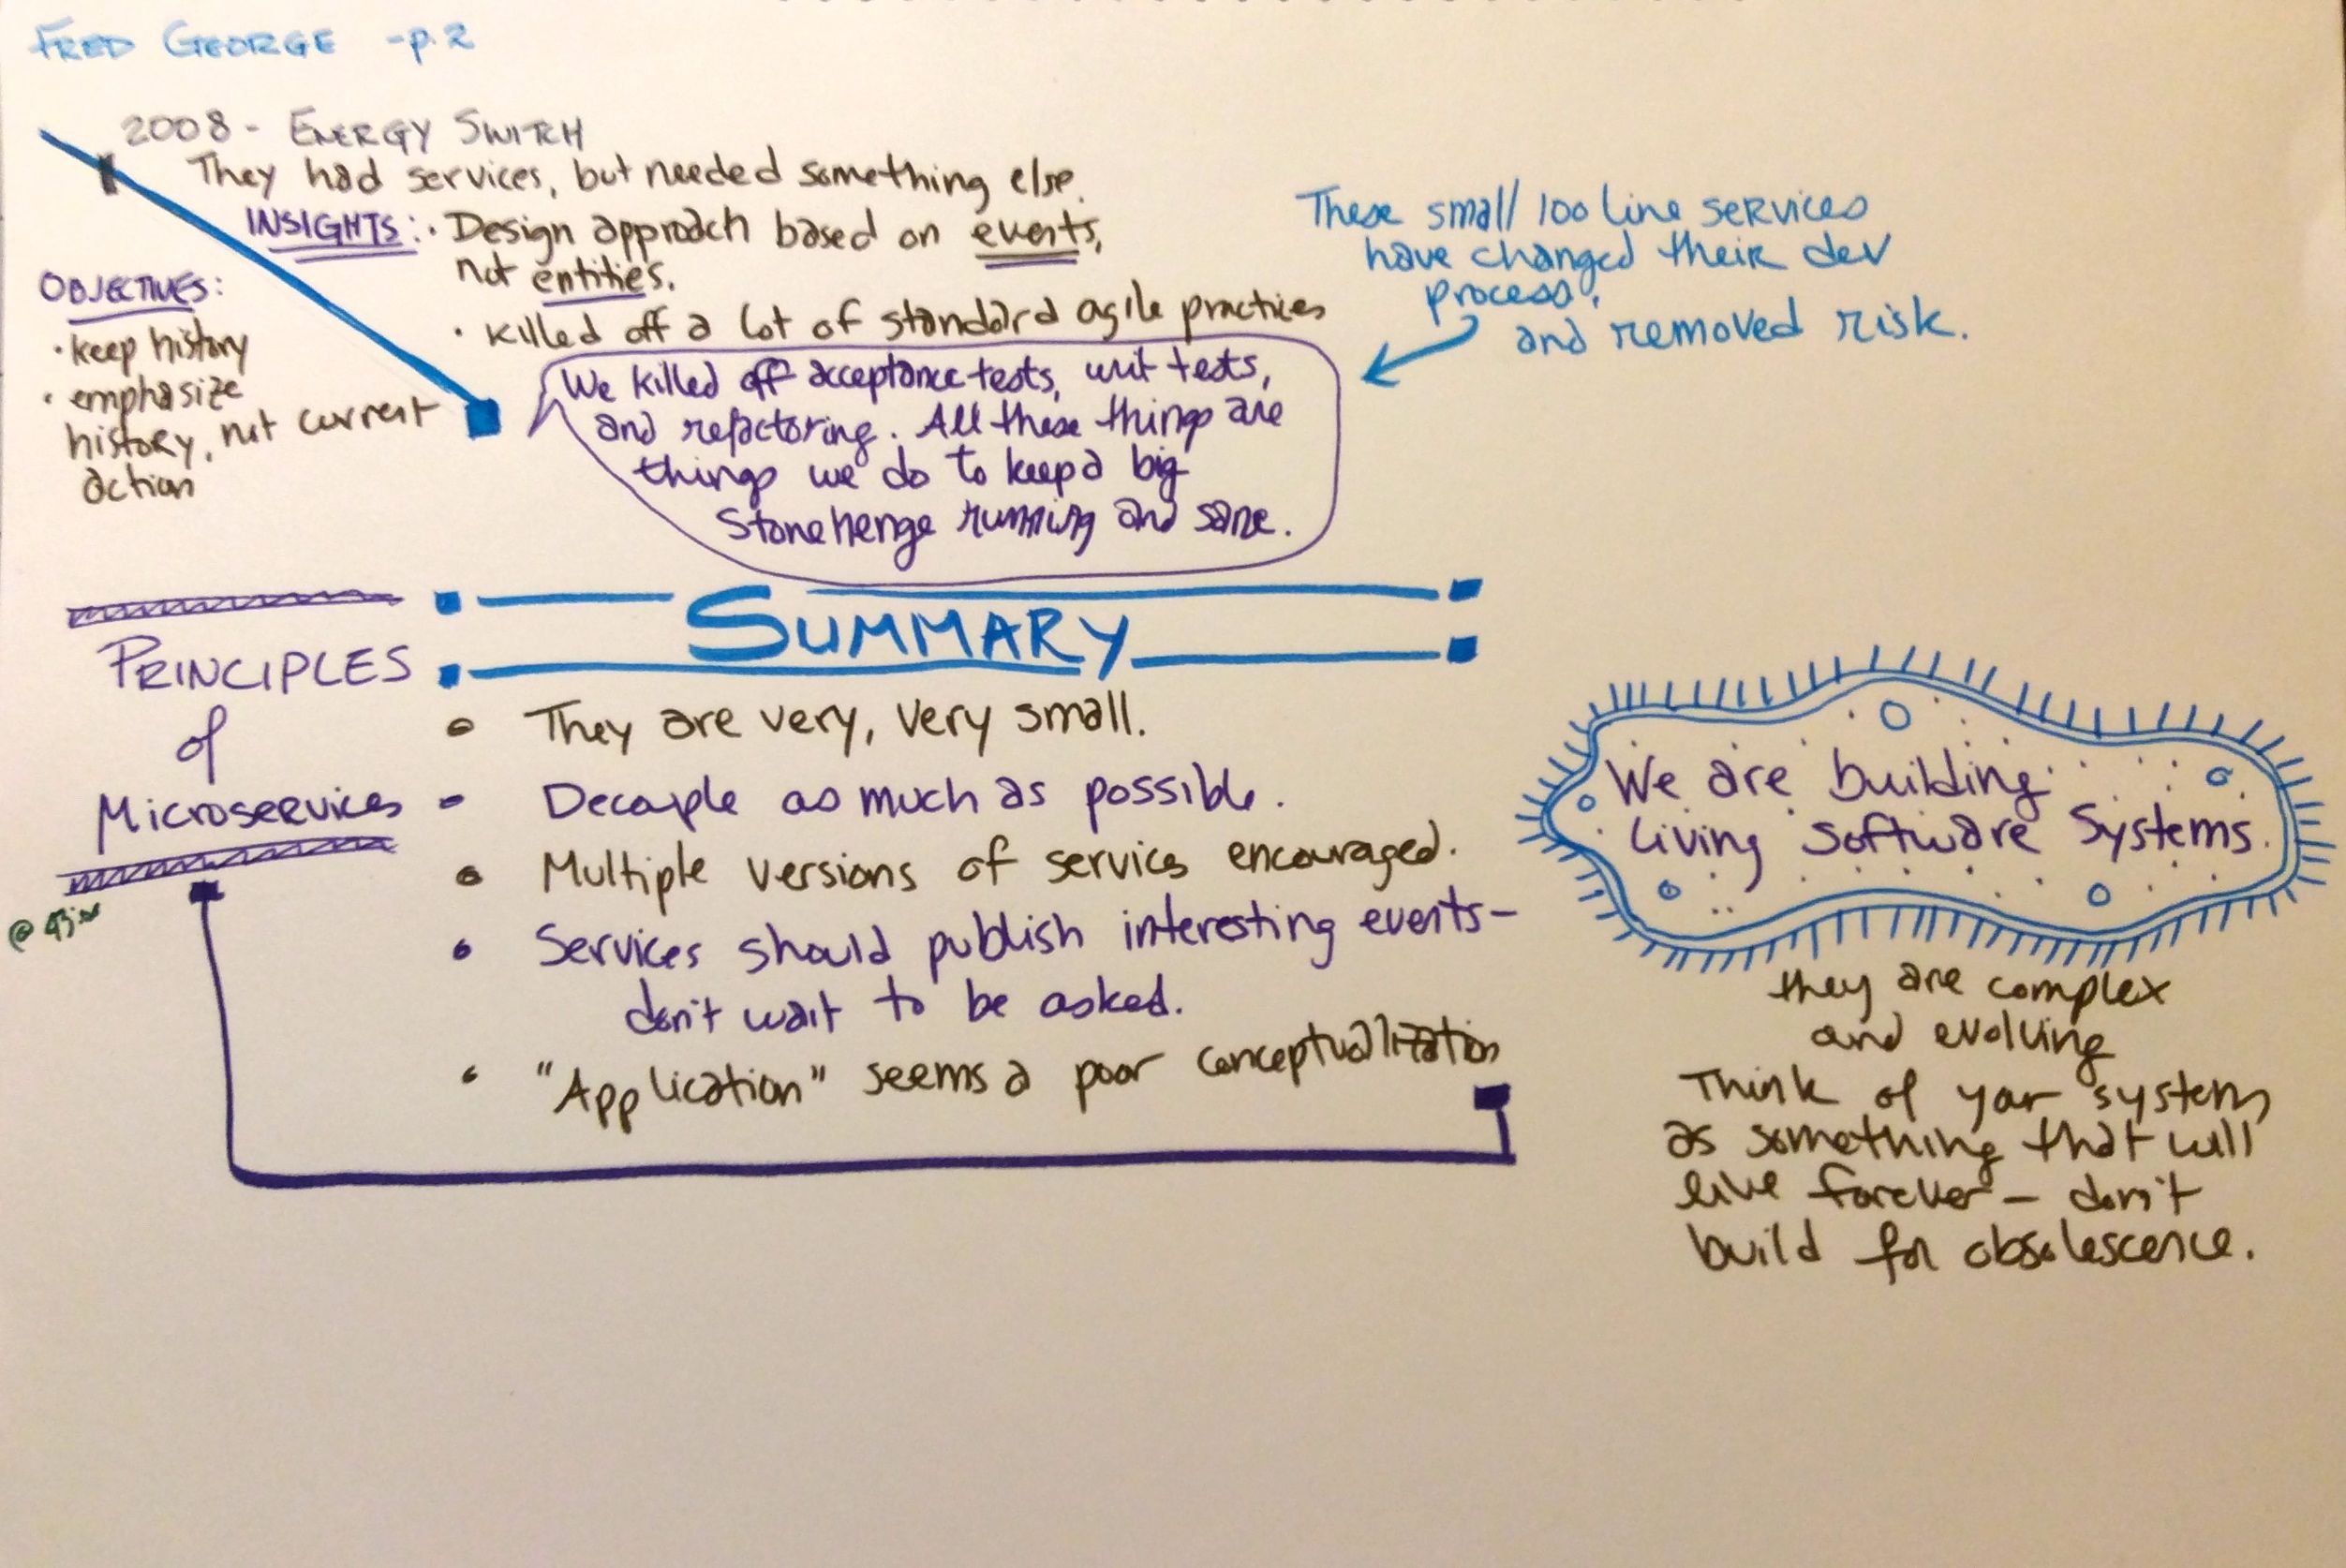 FRED GEORGE - p. 2
2008 - ENERGY SWITCH
They had services, but needed something else.
INSIGHTS: · Design approach based on events,
not entities.
· killed off a lot of standard agile practices
OBJECTIVES:
· keep history
· emphasize
history, not current
action
We killed off acceptance tests, unit tests,
and refactoring. All these things are
things we do to keep a big
Stonehenge running and sane.
These small 100 line services
have changed their dev
process,
and removed risk.
SUMMARY
PRINCIPLES
of
MICROSERVICES
• They are very, very small.
• Decouple as much as possible.
• Multiple versions of services encouraged.
• Services should publish interesting events –
don't wait to be asked.
• "Application" seems a poor conceptualization
We are building
living software systems.
they are complex
and evolving
Think of your system
as something that will
live forever – don't
build for obsolescence.